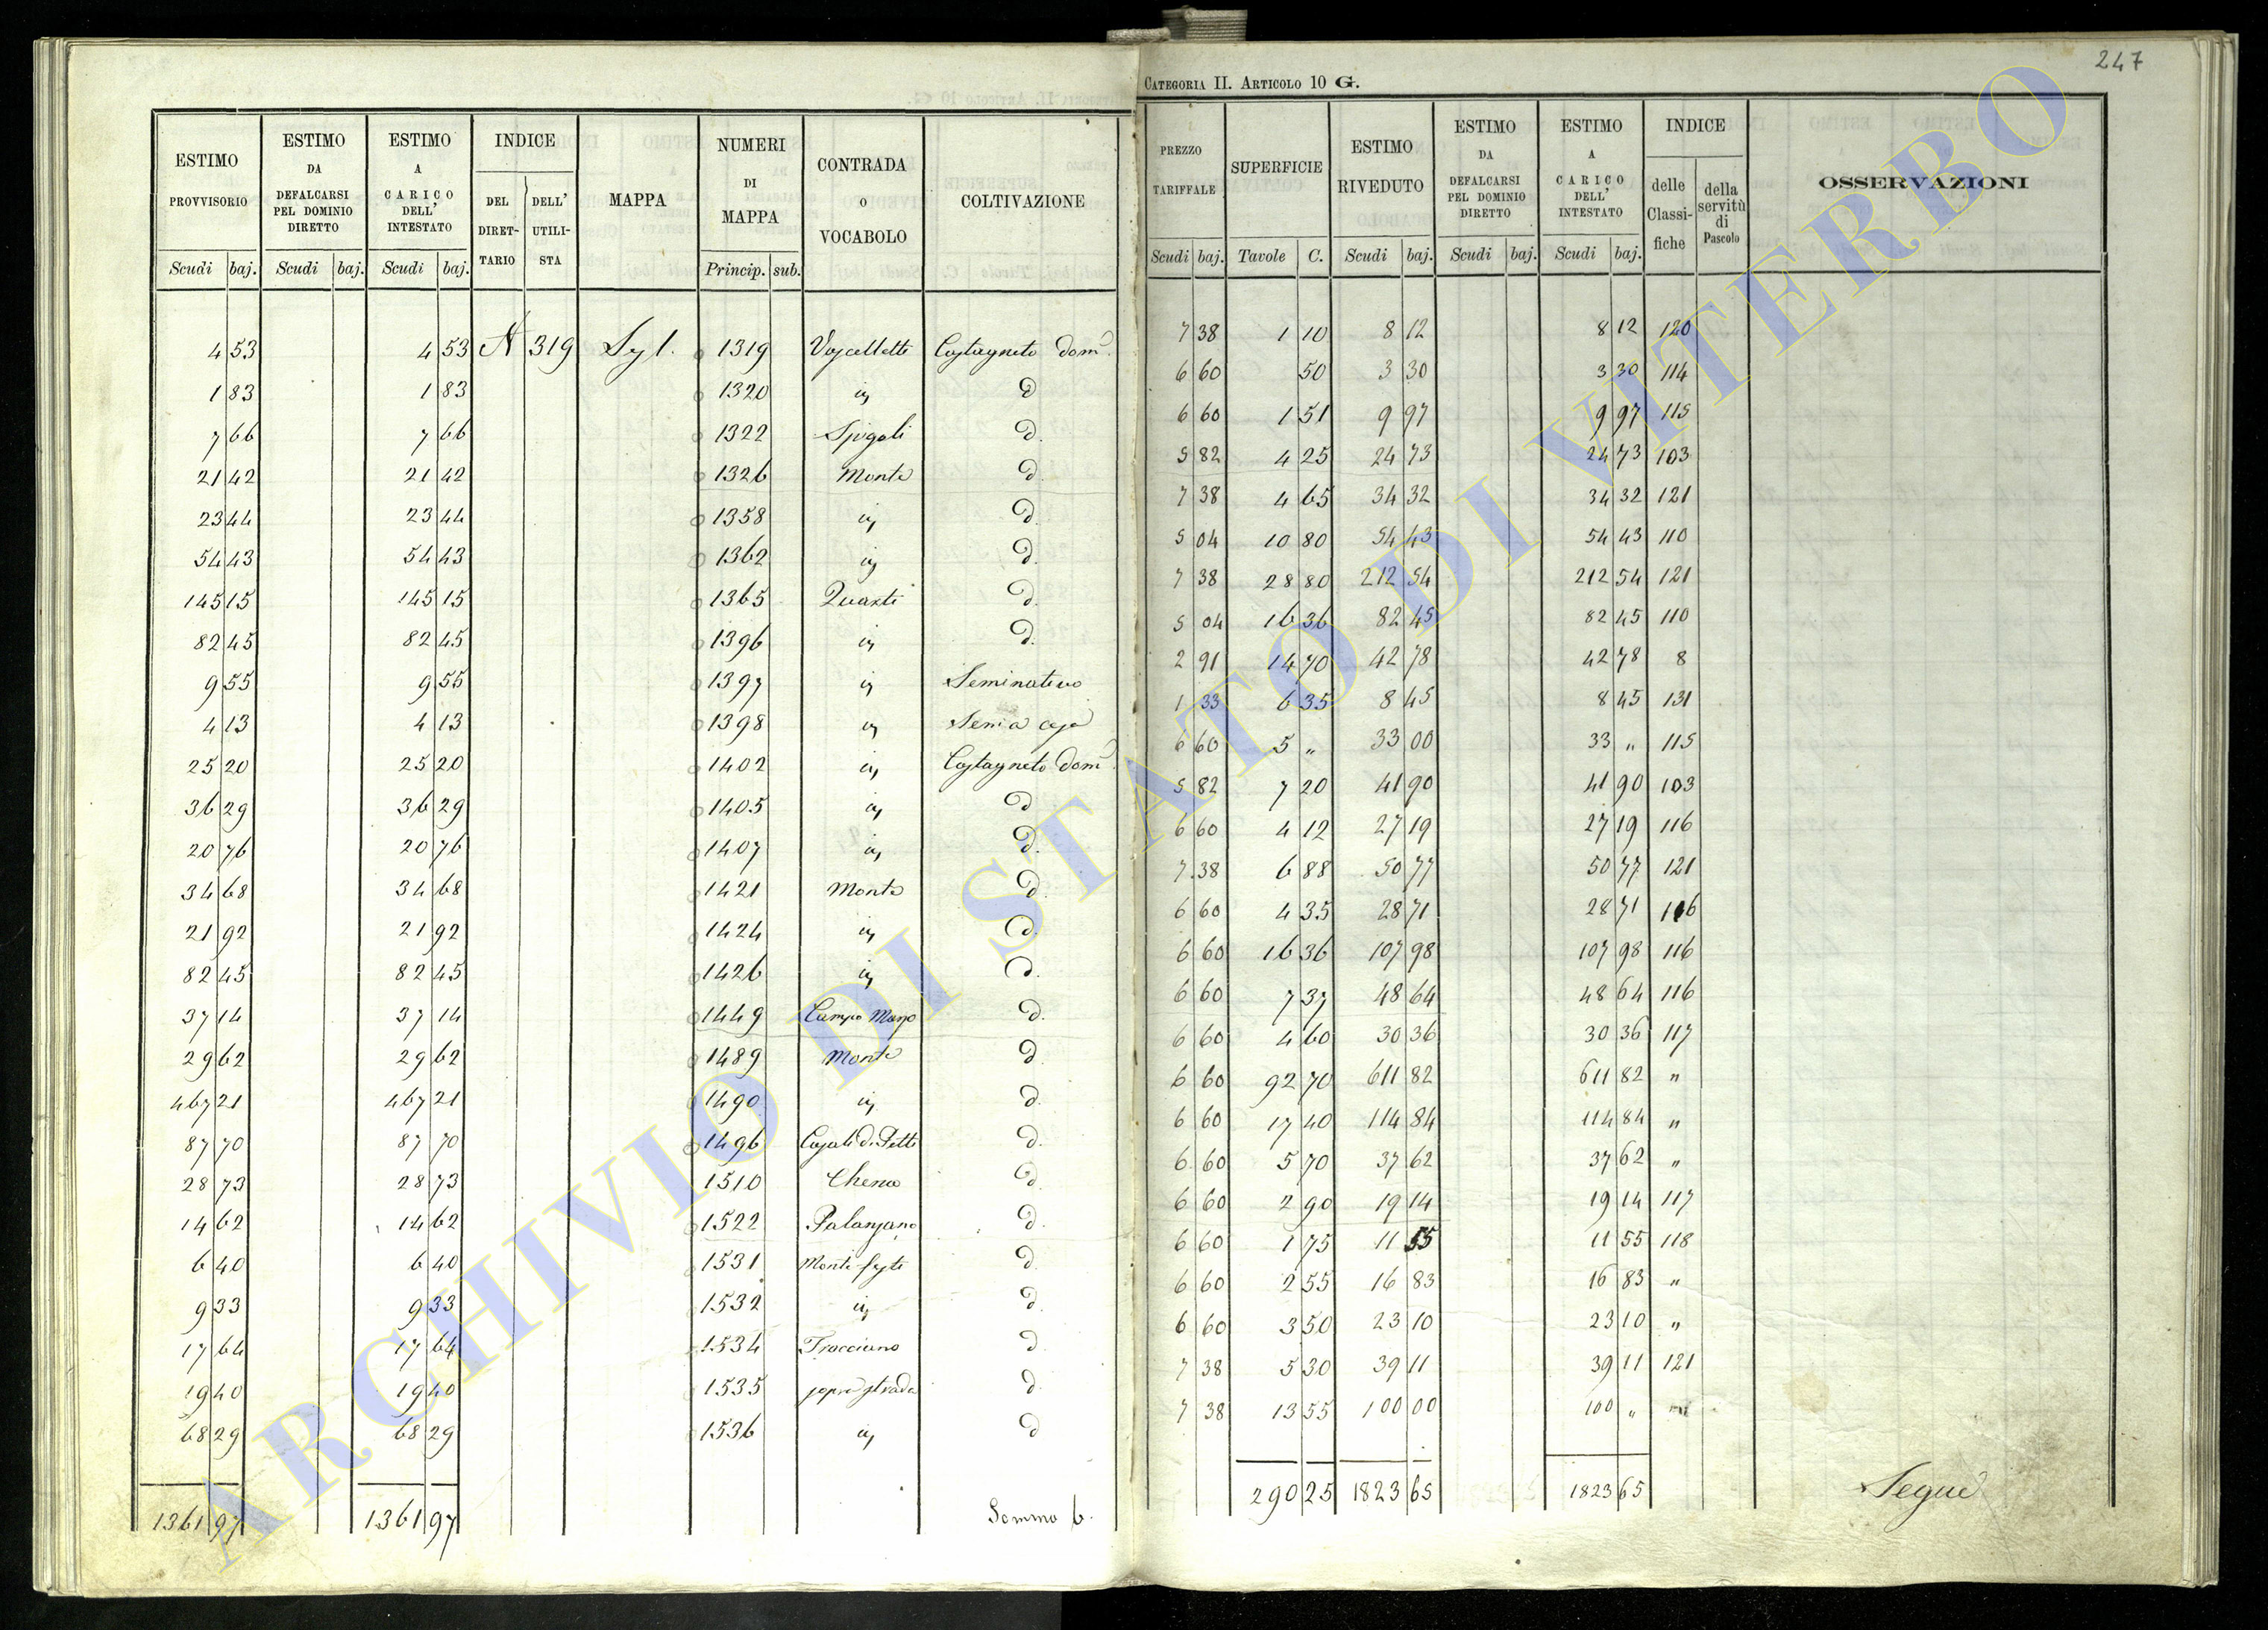 247
CATEGORIA II. ARTICOLO 10 G.
ESTIMO PROVVISORIO Scudi baj.
ESTIMO DA DEFALCARSI PEL DOMINIO DIRETTO Scudi baj.
ESTIMO A CARICO DELL' INTESTATO Scudi baj.
INDICE DEL DIRET-TARIO DELL' UTILI-STA
MAPPA
NUMERI DI MAPPA Princip. sub.
CONTRADA O VOCABOLO
COLTIVAZIONE
PREZZO TARIFFALE Scudi baj.
SUPERFICIE Tavole C.
ESTIMO RIVEDUTO Scudi baj.
ESTIMO DA DEFALCARSI PEL DOMINIO DIRETTO Scudi baj.
ESTIMO A CARICO DELL' INTESTATO Scudi baj.
INDICE delle Classi-fiche della servitù di Pascolo
OSSERVAZIONI
4 53 4 53 319 1319 Castagneto dom. 7 38 1 10 8 12 8 12 120
1 83 1 83 1320 D 6 60 50 3 30 3 30 114
7 66 7 66 1322 Spigoli D. 6 60 1 51 9 97 9 97 115
21 42 21 42 1326 Monte D. 5 82 4 25 24 73 24 73 103
23 44 23 44 1358 D. 7 38 4 65 34 32 34 32 121
54 43 54 43 1362 D. 5 04 10 80 54 43 54 43 110
145 15 145 15 1365 Quarti D. 7 38 28 80 212 54 212 54 121
82 45 82 45 1396 D. 5 04 16 36 82 45 82 45 110
9 55 9 55 1397 Seminativo 2 91 14 70 42 78 42 78 8
4 13 4 13 1398 1 33 6 35 8 45 8 45 131
25 20 25 20 1402 Castagneto dom. 6 60 5 „ 33 00 33 „ 115
36 29 36 29 1405 D 5 82 7 20 41 90 41 90 103
20 76 20 76 1407 D. 6 60 4 12 27 19 27 19 116
34 68 34 68 1421 Monte D. 7 38 6 88 50 77 50 77 121
21 92 21 92 1424 D. 6 60 4 35 28 71 28 71 116
82 45 82 45 1426 D. 6 60 16 36 107 98 107 98 116
37 14 37 14 1449 Campo D. 6 60 7 37 48 64 48 64 116
29 62 29 62 1489 Monte D. 6 60 4 60 30 36 30 36 117
467 21 467 21 1490 D. 6 60 92 70 611 82 611 82 „
87 70 87 70 1496 D. 6 60 17 40 114 84 114 84 „
28 73 28 73 1510 D. 6 60 5 70 37 62 37 62 „
14 62 14 62 1522 Palanzano D. 6 60 2 90 19 14 19 14 117
6 40 6 40 1531 Monte D. 6 60 1 75 11 55 11 55 118
9 33 9 33 1532 D. 6 60 2 55 16 83 16 83 „
17 64 17 64 1534 Trocciano D 6 60 3 50 23 10 23 10 „
19 40 19 40 1535 sopra strada D. 7 38 5 30 39 11 39 11 121
68 29 68 29 1536 D 7 38 13 55 100 00 100 „
1361 97 1361 97 Somma 290 25 1823 65 1823 65
Segue
ARCHIVIO DI STATO DI VITERBO